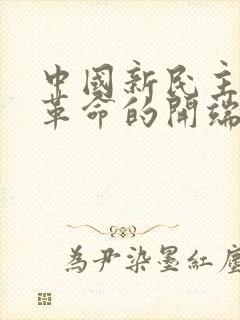 中國新民主
革命的開端
為尹染墨紅塵